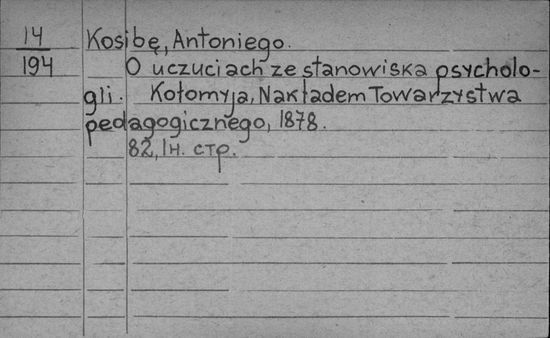 14 Kosibę, Antoniego.
194 O uczuciach ze stanowiska psycholo-
gli. Kołomyja, Nakładem Towarzystwa
pedagogicznego, 1878.
82, 1н. стр.